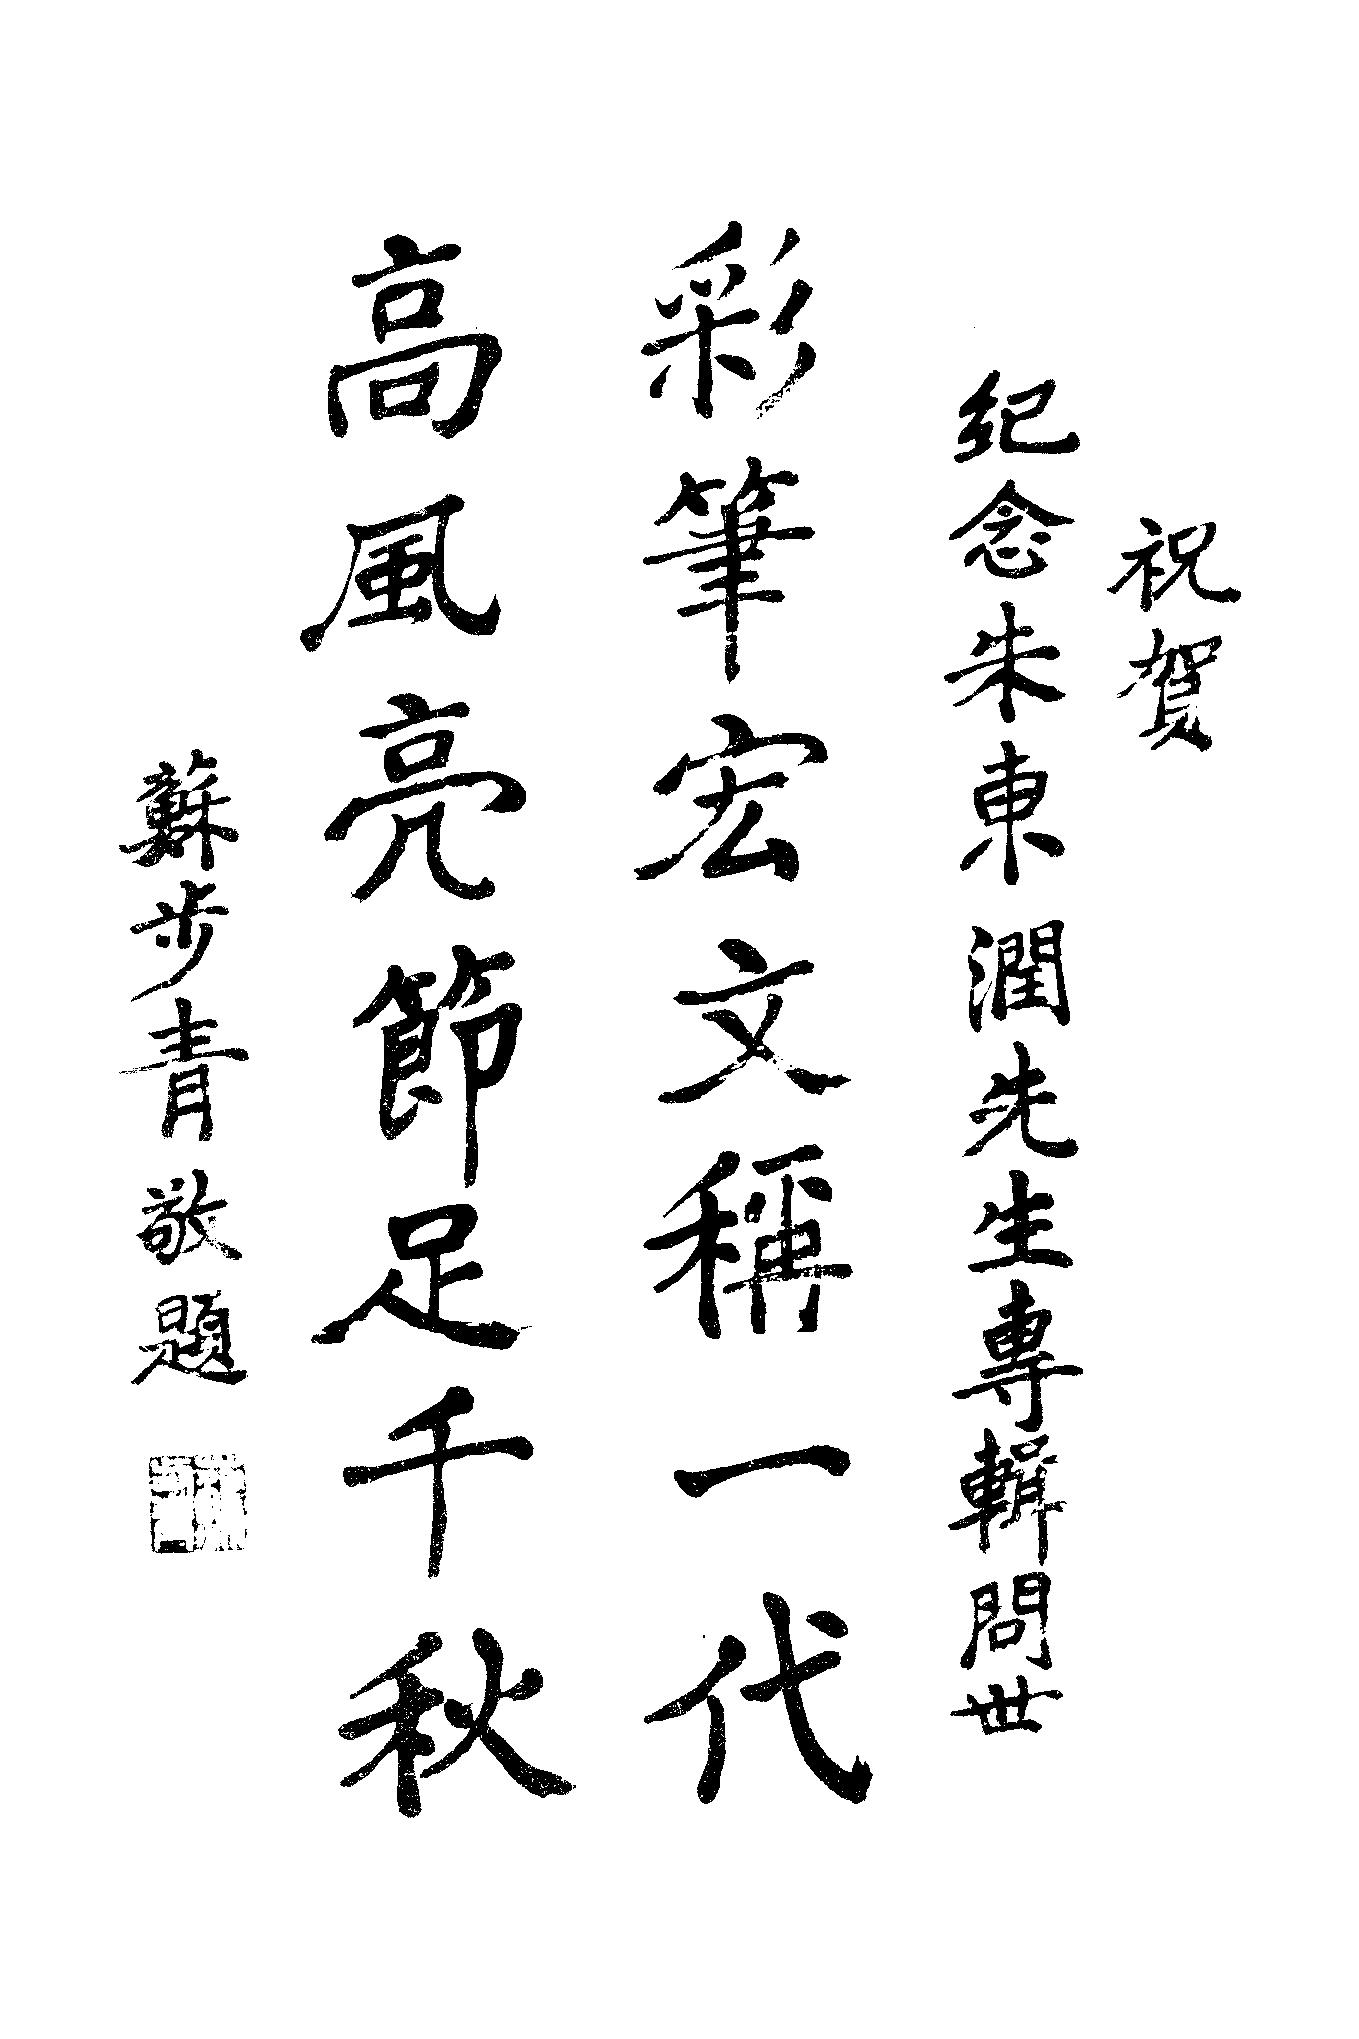 祝賀
紀念朱東潤先生專輯問世
彩筆宏文稱一代
高風亮節足千秋
蘇步青敬題